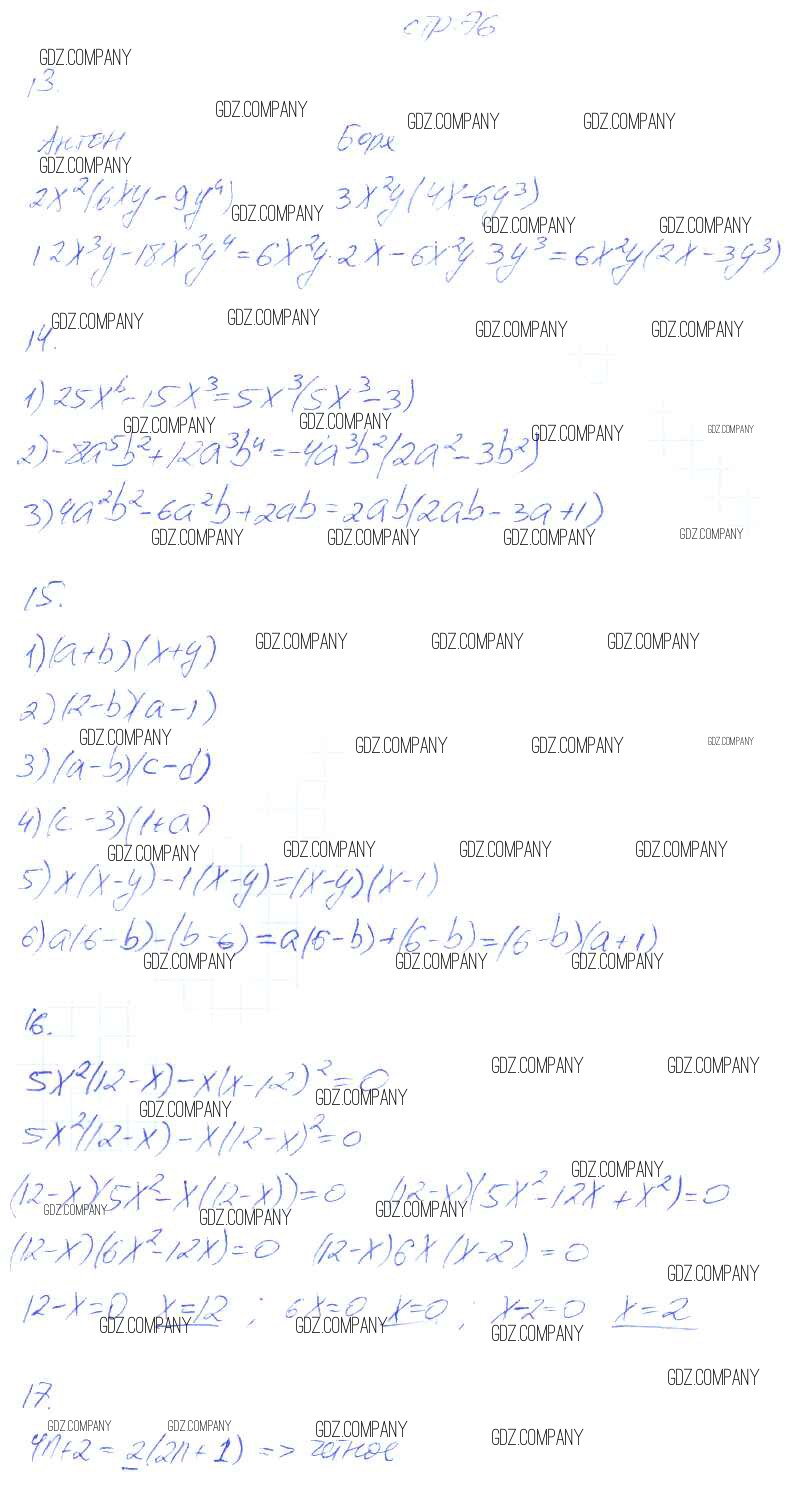 стр. 76
GDZ.COMPANY
13.
GDZ.COMPANY GDZ.COMPANY GDZ.COMPANY
Антон Боря
GDZ.COMPANY
2x²(6xy - 9y⁴) 3x²y(4x - 6y³)
GDZ.COMPANY GDZ.COMPANY GDZ.COMPANY
12x³y - 18x²y⁴ = 6x²y·2x - 6x²y 3y³ = 6x²y(2x - 3y³)
GDZ.COMPANY GDZ.COMPANY GDZ.COMPANY GDZ.COMPANY
14.
1) 25x⁶ - 15x³ = 5x³(5x³ - 3)
GDZ.COMPANY GDZ.COMPANY GDZ.COMPANY GDZ.COMPANY
2) -8a⁵b² + 12a³b⁴ = -4a³b²(2a² - 3b²)
3) 4a²b² - 6a²b + 2ab = 2ab(2ab - 3a + 1)
GDZ.COMPANY GDZ.COMPANY GDZ.COMPANY GDZ.COMPANY
15.
1) (a+b)(x+y) GDZ.COMPANY GDZ.COMPANY GDZ.COMPANY
2) (2-b)(a-1)
GDZ.COMPANY GDZ.COMPANY GDZ.COMPANY GDZ.COMPANY
3) (a-b)(c-d)
4) (c-3)(1+a)
GDZ.COMPANY GDZ.COMPANY GDZ.COMPANY GDZ.COMPANY
5) x(x-y) - 1(x-y) = (x-y)(x-1)
6) a(6-b) - (b-6) = a(6-b) + (6-b) = (6-b)(a+1)
GDZ.COMPANY GDZ.COMPANY GDZ.COMPANY
16.
GDZ.COMPANY GDZ.COMPANY
5x²(12-x) - x(x-12)² = 0
GDZ.COMPANY GDZ.COMPANY
5x²(12-x) - x(12-x)² = 0
GDZ.COMPANY
(12-x)(5x² - x(12-x)) = 0 (12-x)(5x² - 12x + x²) = 0
GDZ.COMPANY GDZ.COMPANY GDZ.COMPANY
(12-x)(6x² - 12x) = 0 (12-x)6x(x-2) = 0
GDZ.COMPANY
12-x=0 x=12 ; 6x=0 x=0 ; x-2=0 x=2
GDZ.COMPANY GDZ.COMPANY GDZ.COMPANY
GDZ.COMPANY
17.
GDZ.COMPANY GDZ.COMPANY GDZ.COMPANY GDZ.COMPANY
4n+2 = 2(2n+1) => четное